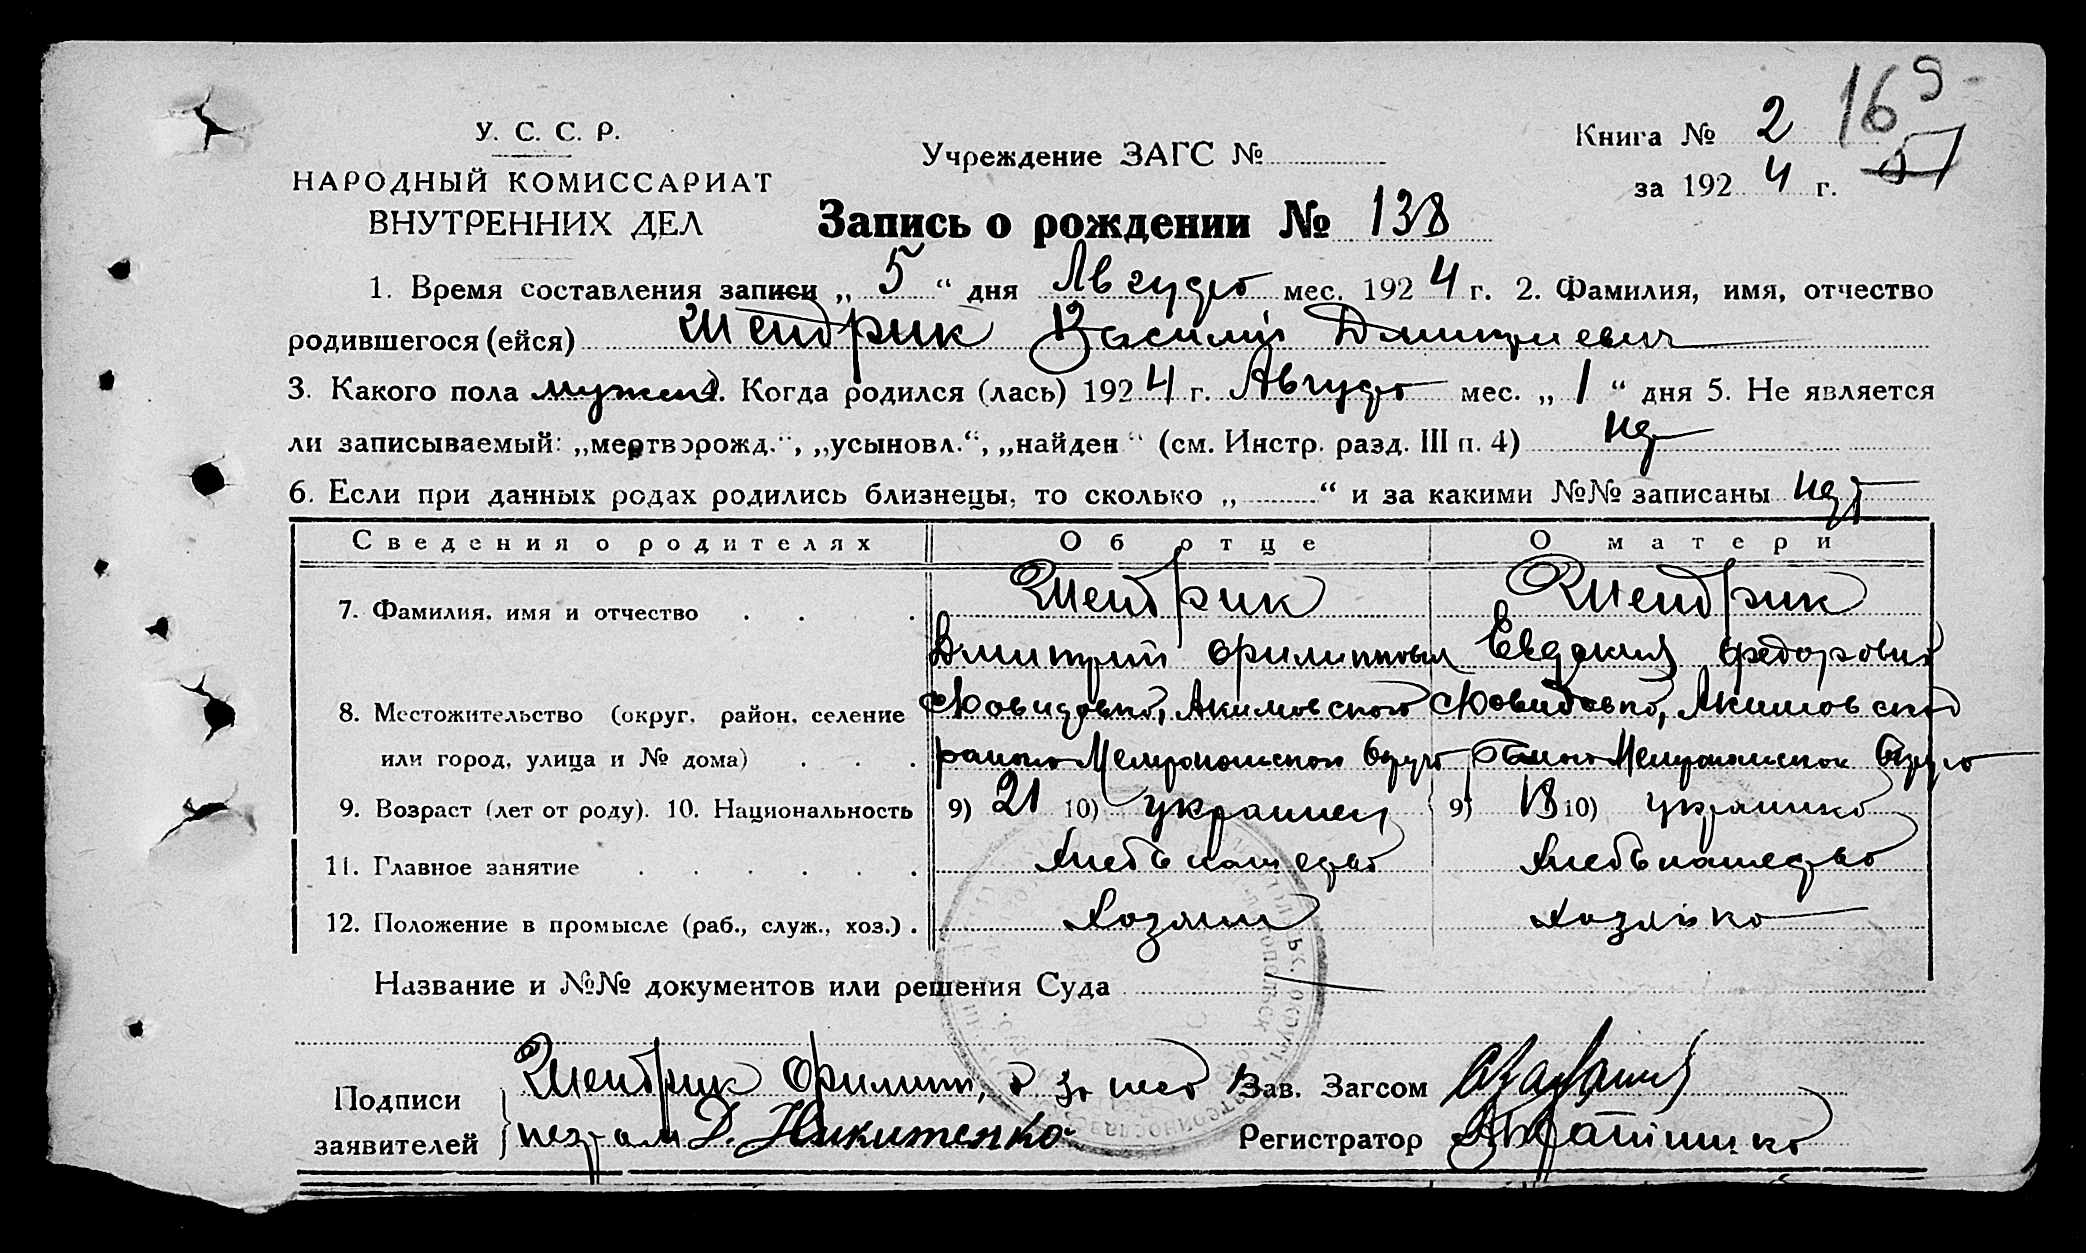 У. С. С. Р.
НАРОДНЫЙ КОМИССАРИАТ
ВНУТРЕННИХ ДЕЛ
Учреждение ЗАГС №
Книга № 2
за 1924 г.
Запись о рождении № 138
1. Время составления записи „ 5 “ дня Августа мес. 1924 г. 2. Фамилия, имя, отчество
родившегося (ейся) Шендрик Василий Дмитриевич
3. Какого пола мужск 4. Когда родился (лась) 1924 г. Августа мес. „ 1 “ дня 5. Не является
ли записываемый: „мертворожд.“, „усыновл.“, „найден“ (см. Инстр. разд. III п. 4) нет
6. Если при данных родах родились близнецы, то сколько „ “ и за какими №№ записаны нет
Сведения о родителях Об отце О матери
7. Фамилия, имя и отчество Шендрик Шендрик
Дмитрий Филиппович Евдокия Федоровна
8. Местожительство (округ, район, селение Давидовка, Акимовского Давидовка, Акимовского
или город, улица и № дома) района Мелитопольского Округа района Мелитопольского Округа
9. Возраст (лет от роду). 10. Национальность 9) 21 10) украинец 9) 18 10) украинка
11. Главное занятие Хлебопашество Хлебопашество
12. Положение в промысле (раб., служ., хоз.) Хозяин Хозяйка
Название и №№ документов или решения Суда
Подписи Шендрик Филипп, а за него Зав. Загсом
заявителей неграм Д. Никитенко Регистратор